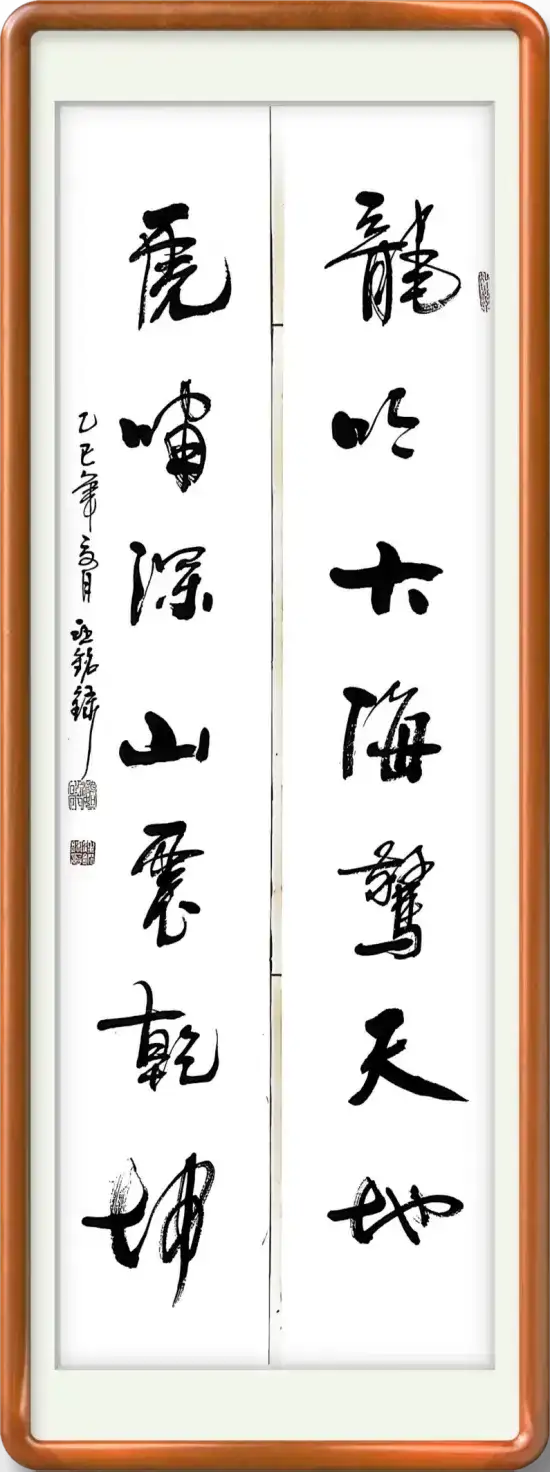 龍吟大海驚天地
虎嘯深山震乾坤
乙巳年 月 銘錄